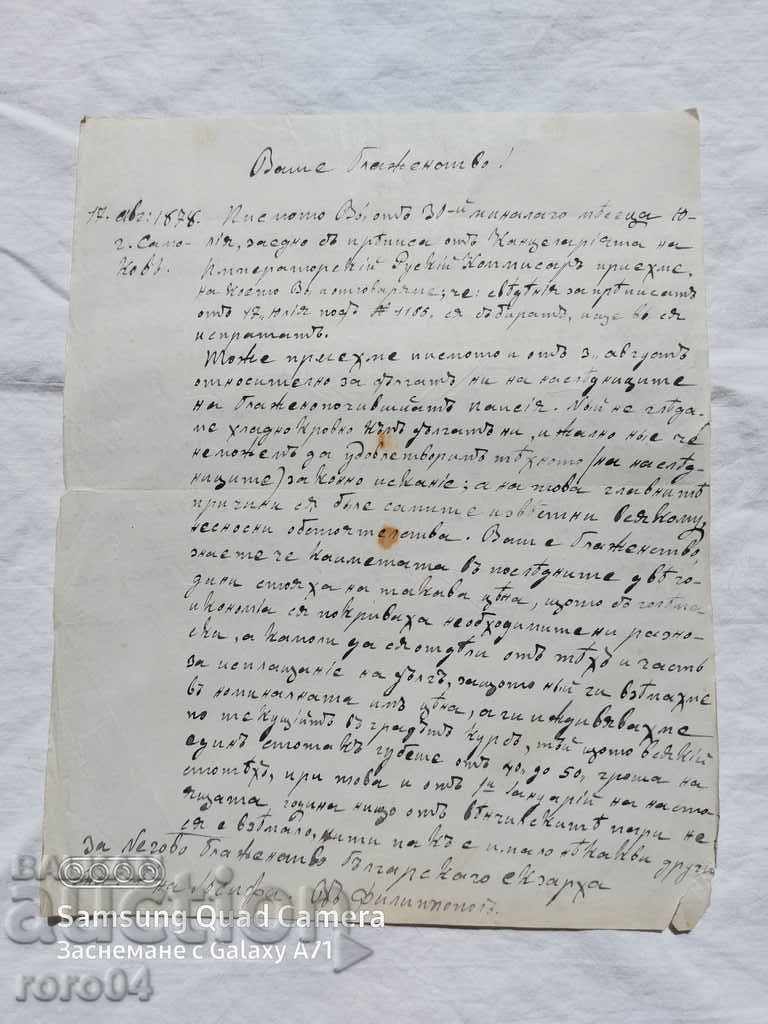 Ваше Блаженство!
17. авг: 1878. Писмото Ви, отъ 30-й миналаго мѣсеца Ю-
г. Само- лія, заедно съ прѣписа отъ Канцеларіята на
ковъ. Императорскій Рускій Коммисаръ приехме,
на което Ви отговаряме, че: свѣдѣнія за прѣписатъ
отъ 17, Юлія подъ № 4186. ся събиратъ, и ще ви ся
испратятъ.
Тоже приехме писмото и отъ 3, августъ
относително за дългатъ ни на наслѣдниците
на Блаженопочившійтъ Паисія. Ный не глѣда-
ме хладнокровно към дългатъ ни, и жално ные че
неможемъ да удовлетворимъ тѣхното (на наслѣд-
ниците) законно искание; а на това главнитѣ
причини ся биле самите извѣстни всякому,
несносни обстоятелства. Ваше Блаженство,
знаете че каиметата въ послѣдните двѣ го-
дини стояха на такава цѣна, щото съ голѣма
икономіа ся покриваха необходимите ни разно-
ски, а камоли да ся отдѣли отъ тѣхъ и часть
за исплащаніе на дългъ, защото ный ги взѣмахме
въ номиналната имъ цѣна, а ги иждивявахме
по текущійтъ въ градътъ курсъ, тъй щото всякій
единъ стотакъ губеше отъ 40, до 50, гроша на
стотѣхъ, при това и отъ 1й Януарій на насто-
ящата година нищо отъ вѣнчилскитѣ пари не-
ся е взѣмало, нити пакъ е имало нѣкакви други
За Негово Блаженство Българскаго екзарха
Іосифа. Въ Филиппополъ.
auction
Samsung Quad Camera
Заснемане с Galaxy A71
roro04